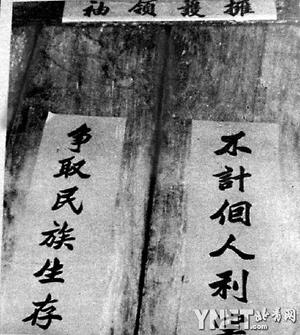 擁護領袖
不計個人利
争取民族生存
YNET 北青网